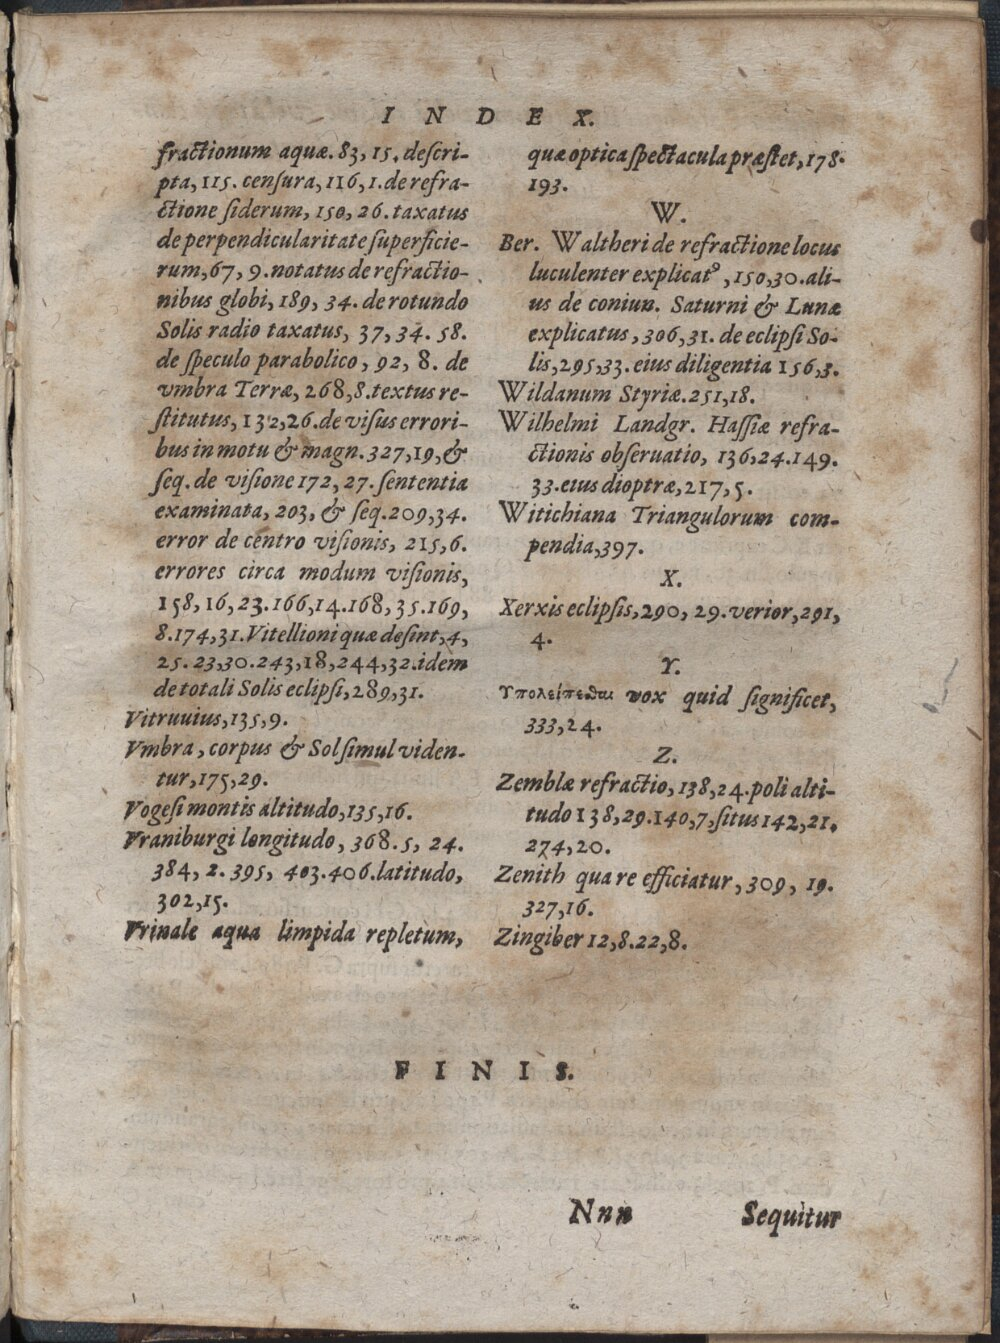 INDEX.
fractionum aquæ. 83, 15. descri-
pta, 115. censura, 116, 1. de refra-
ctione siderum, 150, 26. taxatus
de perpendicularitate superficie-
rum, 67, 9. notatus de refractio-
nibus globi, 189, 34. de rotundo
Solis radio taxatus, 37, 34. 58.
de speculo parabolico, 92, 8. de
vmbra Terræ, 268, 8. textus re-
stitutus, 132, 26. de visus errori-
bus in motu & magn. 327, 19, &
seq. de visione 172, 27. sententia
examinata, 203, & seq. 209, 34.
error de centro visionis, 215, 6.
errores circa modum visionis,
158, 16, 23. 166, 14. 168, 35. 169,
8. 174, 31. Vitellioni quæ desint, 4,
25. 23, 30. 243, 18, 244, 32. idem
de totali Solis eclipsi, 289, 31.
Vitruuius, 135, 9.
Vmbra, corpus & Sol simul viden-
tur, 175, 29.
Vogesi montis altitudo, 135, 16.
Vraniburgi longitudo, 368. 5, 24.
384, 2. 395, 403. 406. latitudo,
302, 15.
Vrinale aqua limpida repletum,
quæ optica spectacula præstet, 178.
193.
W.
Ber. Waltheri de refractione locus
luculenter explicatꝰ, 150, 30. ali-
us de coniun. Saturni & Lunæ
explicatus, 306, 31. de eclipsi So-
lis, 295, 33. eius diligentia 156, 3.
Wildanum Styriæ. 251, 18.
Wilhelmi Landgr. Hassiæ refra-
ctionis obseruatio, 136, 24. 149.
33. eius dioptræ, 217, 5.
Witichiana Triangulorum com-
pendia, 397.
X.
Xerxis eclipsis, 290, 29. verior, 291,
4.
Y.
Υπολείπεσθαι vox quid significet,
333, 24.
Z.
Zemblæ refractio, 138, 24. poli alti-
tudo 138, 29. 140, 7, situs 142, 21.
274, 20.
Zenith quare efficiatur, 309, 19.
327, 16.
Zingiber 12, 8. 22, 8.
FINIS.
Nnn Sequitur